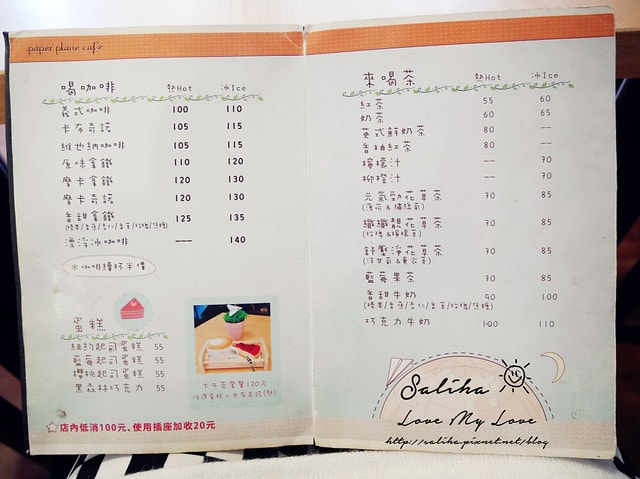 paper plane cafe
喝咖啡 熱Hot 冰Ice
義式咖啡 100 110
卡布奇諾 105 115
維也納咖啡 105 115
原味拿鐵 110 120
摩卡拿鐵 120 130
摩卡奇諾 120 130
香甜拿鐵 125 135
(榛果/香草/杏仁/
漂浮冰咖啡 --- 140
※咖啡續杯半價
蛋糕
紐約起司蛋糕 55
藍莓起司蛋糕 55
櫻桃起司蛋糕 55
黑森林巧克力 55
下午茶套餐120元
任選蛋糕+卡布奇諾(熱)
店內低消100元、使用插座加收20元
來喝茶 熱Hot 冰Ice
紅茶 55 60
奶茶 60 65
英式鮮奶茶 80 --
香柚紅茶 80 --
檸檬汁 -- 70
柳橙汁 -- 70
元氣勁花草茶 70 85
纖纖靚花草茶 70 85
(玫瑰&檸檬草)
舒壓淨花草茶 70 85
(洋甘菊&薰衣草)
藍莓果茶 70 85
香甜牛奶 90 100
(榛果/香草/杏仁/
巧克力牛奶 100 110
Saliha
Love My Love
http://saliha.pixnet.net/blog